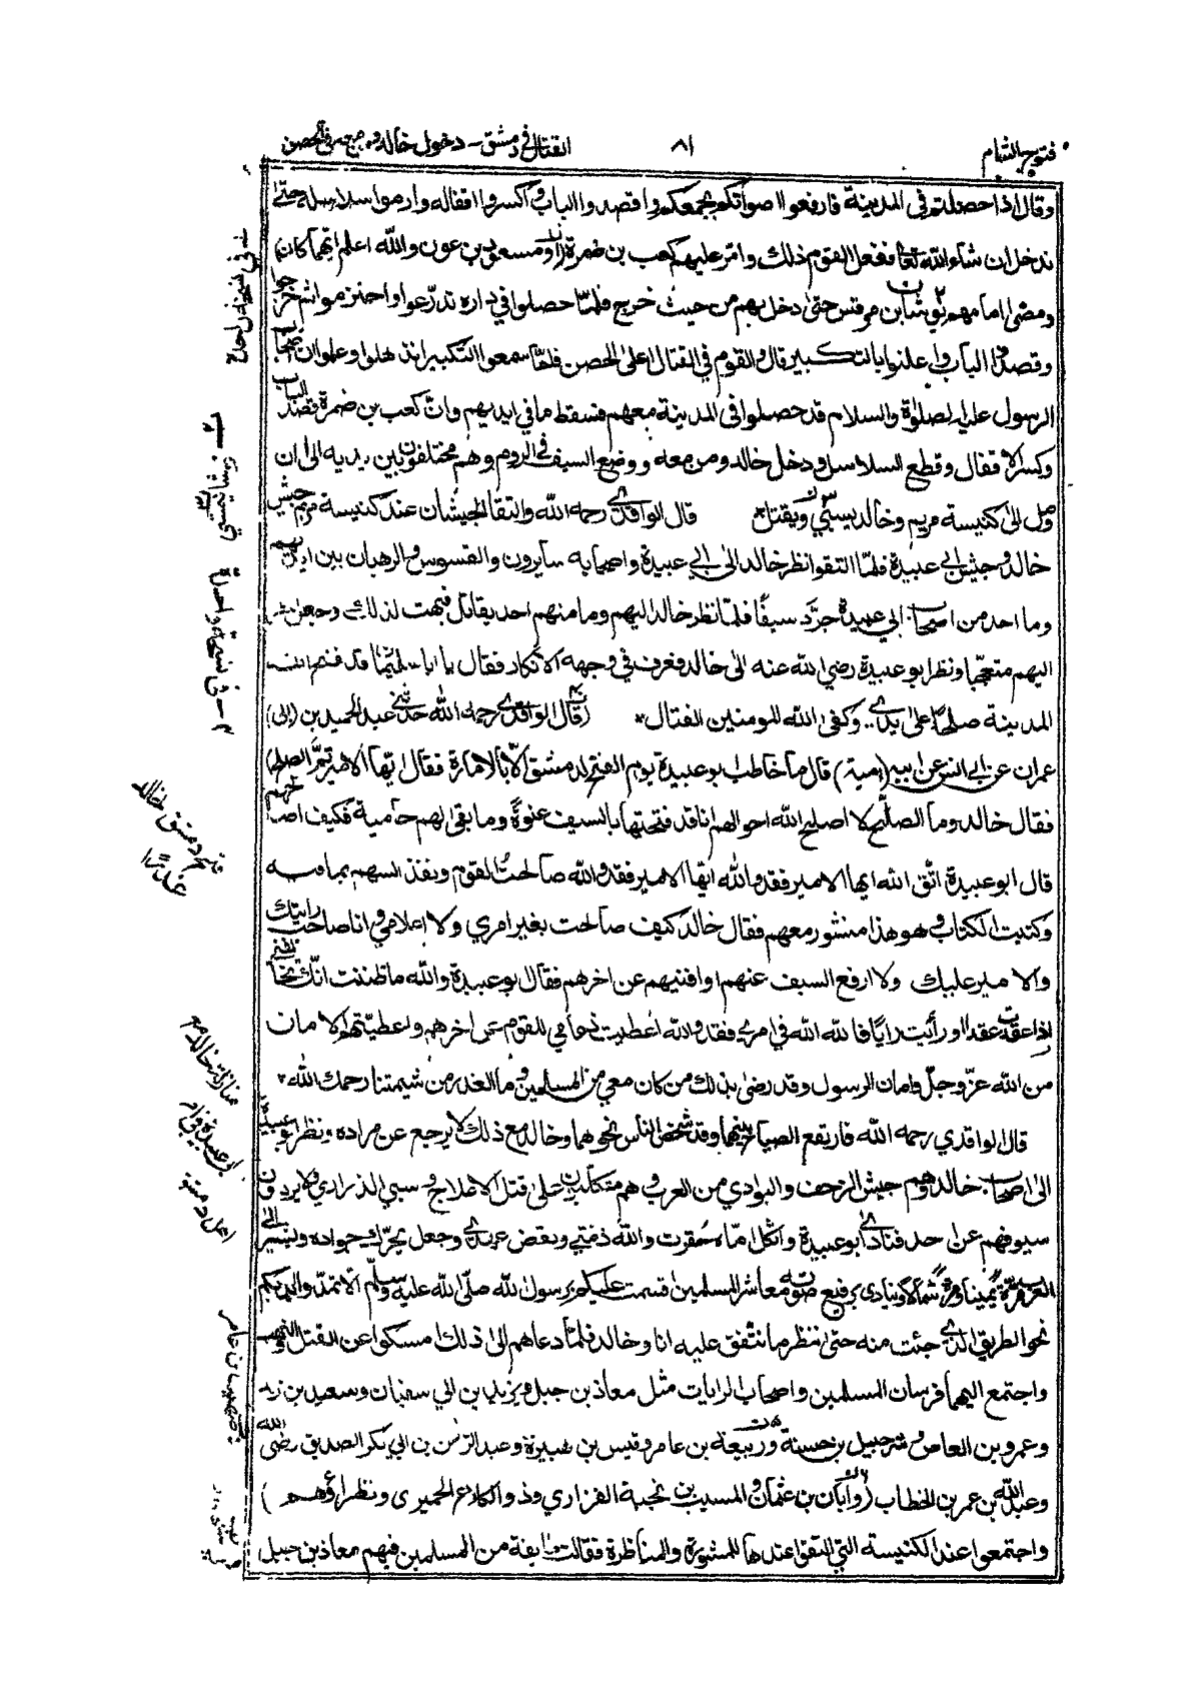 فتوح الشام
٨١
القتال في دمشق - دخول خالد ومن معه في الحصن
وقال اذا حصلتم في المدينة فارفعوا اصواتكم بجمعكم واقصدوا الباب واكسروا اقفاله وارموا سلاسله حتى
ندخل ان شاء الله تعا ففعل القوم ذلك وامّر عليهم كعب بن ضمرة (او) مسعود بن عون والله اعلم ايّهما كان
ومضى امامهم بن مرقس حتى دخل بهم من حيث خرج فلمّا حصلوا في داره تدرّعوا واحتزموا ثم خرجوا
وقصدوا الباب واعلنوا بالتكبير قال والقوم في القتال اعلى الحصن فلمّا سمعوا التكبير انذهلوا وعلموا ان اصحاب
الرسول عليه الصلوة والسلام قد حصلوا في المدينة معهم فسقط ما في ايديهم وانّ كعب بن ضمرة قصد الباب
وكسر الاقفال وقطع السلاسل ودخل خالد ومن معه ووضع السيف في الروم وهم مختلفون بين يديه الى ان
وصل الى كنيسة مريم وخالد يسبي ويقتل * قال الواقدي رحمه الله والتقا الجيشان عند كنيسة مريم جيش
خالد وجيش ابي عبيدة فلمّا التقوا نظر خالد الى ابي عبيدة واصحابه سايرون والقسوس والرهبان بين ايديهم
وما احد من اصحاب ابي عبيدة جرّد سيفًا فلمّا نظر خالد اليهم وما منهم احد يقاتل فبهت لذلك وجعل ينظر
اليهم متعجّبا ونظر ابو عبيدة رضي الله عنه الى خالد فعرف في وجهه الانكار فقال يا ابا سليمٰن قد فتح الله
المدينة صلحًا على يدي وكفى الله المومنين القتال * (قال الواقدي رحمه الله حدثني عبد الحميد بن (ابي)
عمران عن ابي انس عن ابيه (امية) قال ما خاطب ابو عبيدة يوم الفتح لدمشق الّا بالامارة فقال ايّها الامير تمّ الصلح)
فقال خالد وما الصلح لا اصلح الله احوالهم انا قد فتحتها بالسيف عنوةً وما بقى لهم حامية فكيف اصالحهم
قال ابو عبيدة اتّق الله ايها الامير فقد والله ايّها الامير فقد والله صالحت القوم ونفذ السهم بما فيه
وكتبت الكتاب وهو هذا منشور معهم فقال خالد كيف صالحت بغير امري ولا اعلامي وانا صاحب رايتك
والامير عليك ولا ارفع السيف عنهم او افنيهم عن اخرهم فقال ابو عبيدة والله ما ظننت انّك تخالفني
اذا عقدت عقدا او رأيت رايًا فالله الله في امري فقد والله اعطيت ذمامي للقوم عن اخرهم واعطيتهم الامان
من الله عزّ وجلّ وامان الرسول وقد رضى بذلك من كان معي من المسلمين وما الغدر من شيمتنا رحمك الله *
قال الواقدي رحمه الله فارتفع الصياح بينهما وقد شخص الناس نحوهما وخالد مع ذلك لا يرجع عن مراده ونظر ابو عبيدة
الى اصحاب خالد وهم جيش الزحف والبوادي من العرب وهم متكلّبون على قتل الاعلاج وسبي الذراري ولا يردون
سيوفهم عن احد فنادى ابو عبيدة واثكل امّاه حُقرت والله ذمّتي ونقض عهدي وجعل يحرّك جواده ويشير الى
العرب مرّة يمينا ومرة شمالا وينادي برفيع صوته معاشر المسلمين اقسمت عليكم برسول الله صلّى الله عليه وسلّم الّا تمدّوا ايديكم
نحو الطريق الذي جئت منه حتى ننظر ما نتّفق عليه انا وخالد فلمّا دعاهم الى ذلك امسكوا عن القتل والنهب
واجتمع اليهما فرسان المسلمين واصحاب الرايات مثل معاذ بن جبل ويزيد بن ابي سفيان وسعيد بن زيد
وعمرو بن العاص وشرحبيل بن حسنة وربيعة بن عامر وقيس بن هبيرة وعبد الرحمٰن بن ابي بكر الصديق رضى الله
وعبد الله بن عمر بن الخطاب (وابان بن عثمان والمسيب بن نجبة الفزاري وذو الكلاع الحميرى ونظراؤهم)
واجتمعوا عند الكنيسة التي التقوا عندها للمشورة والمناظرة فقالت طايفة من المسلمين فيهم معاذ بن جبل
فى نسخة واحدة
فتح دمشق لخالد
مناظرة خالد مع
ابي عبيدة في امر
اهل دمشق